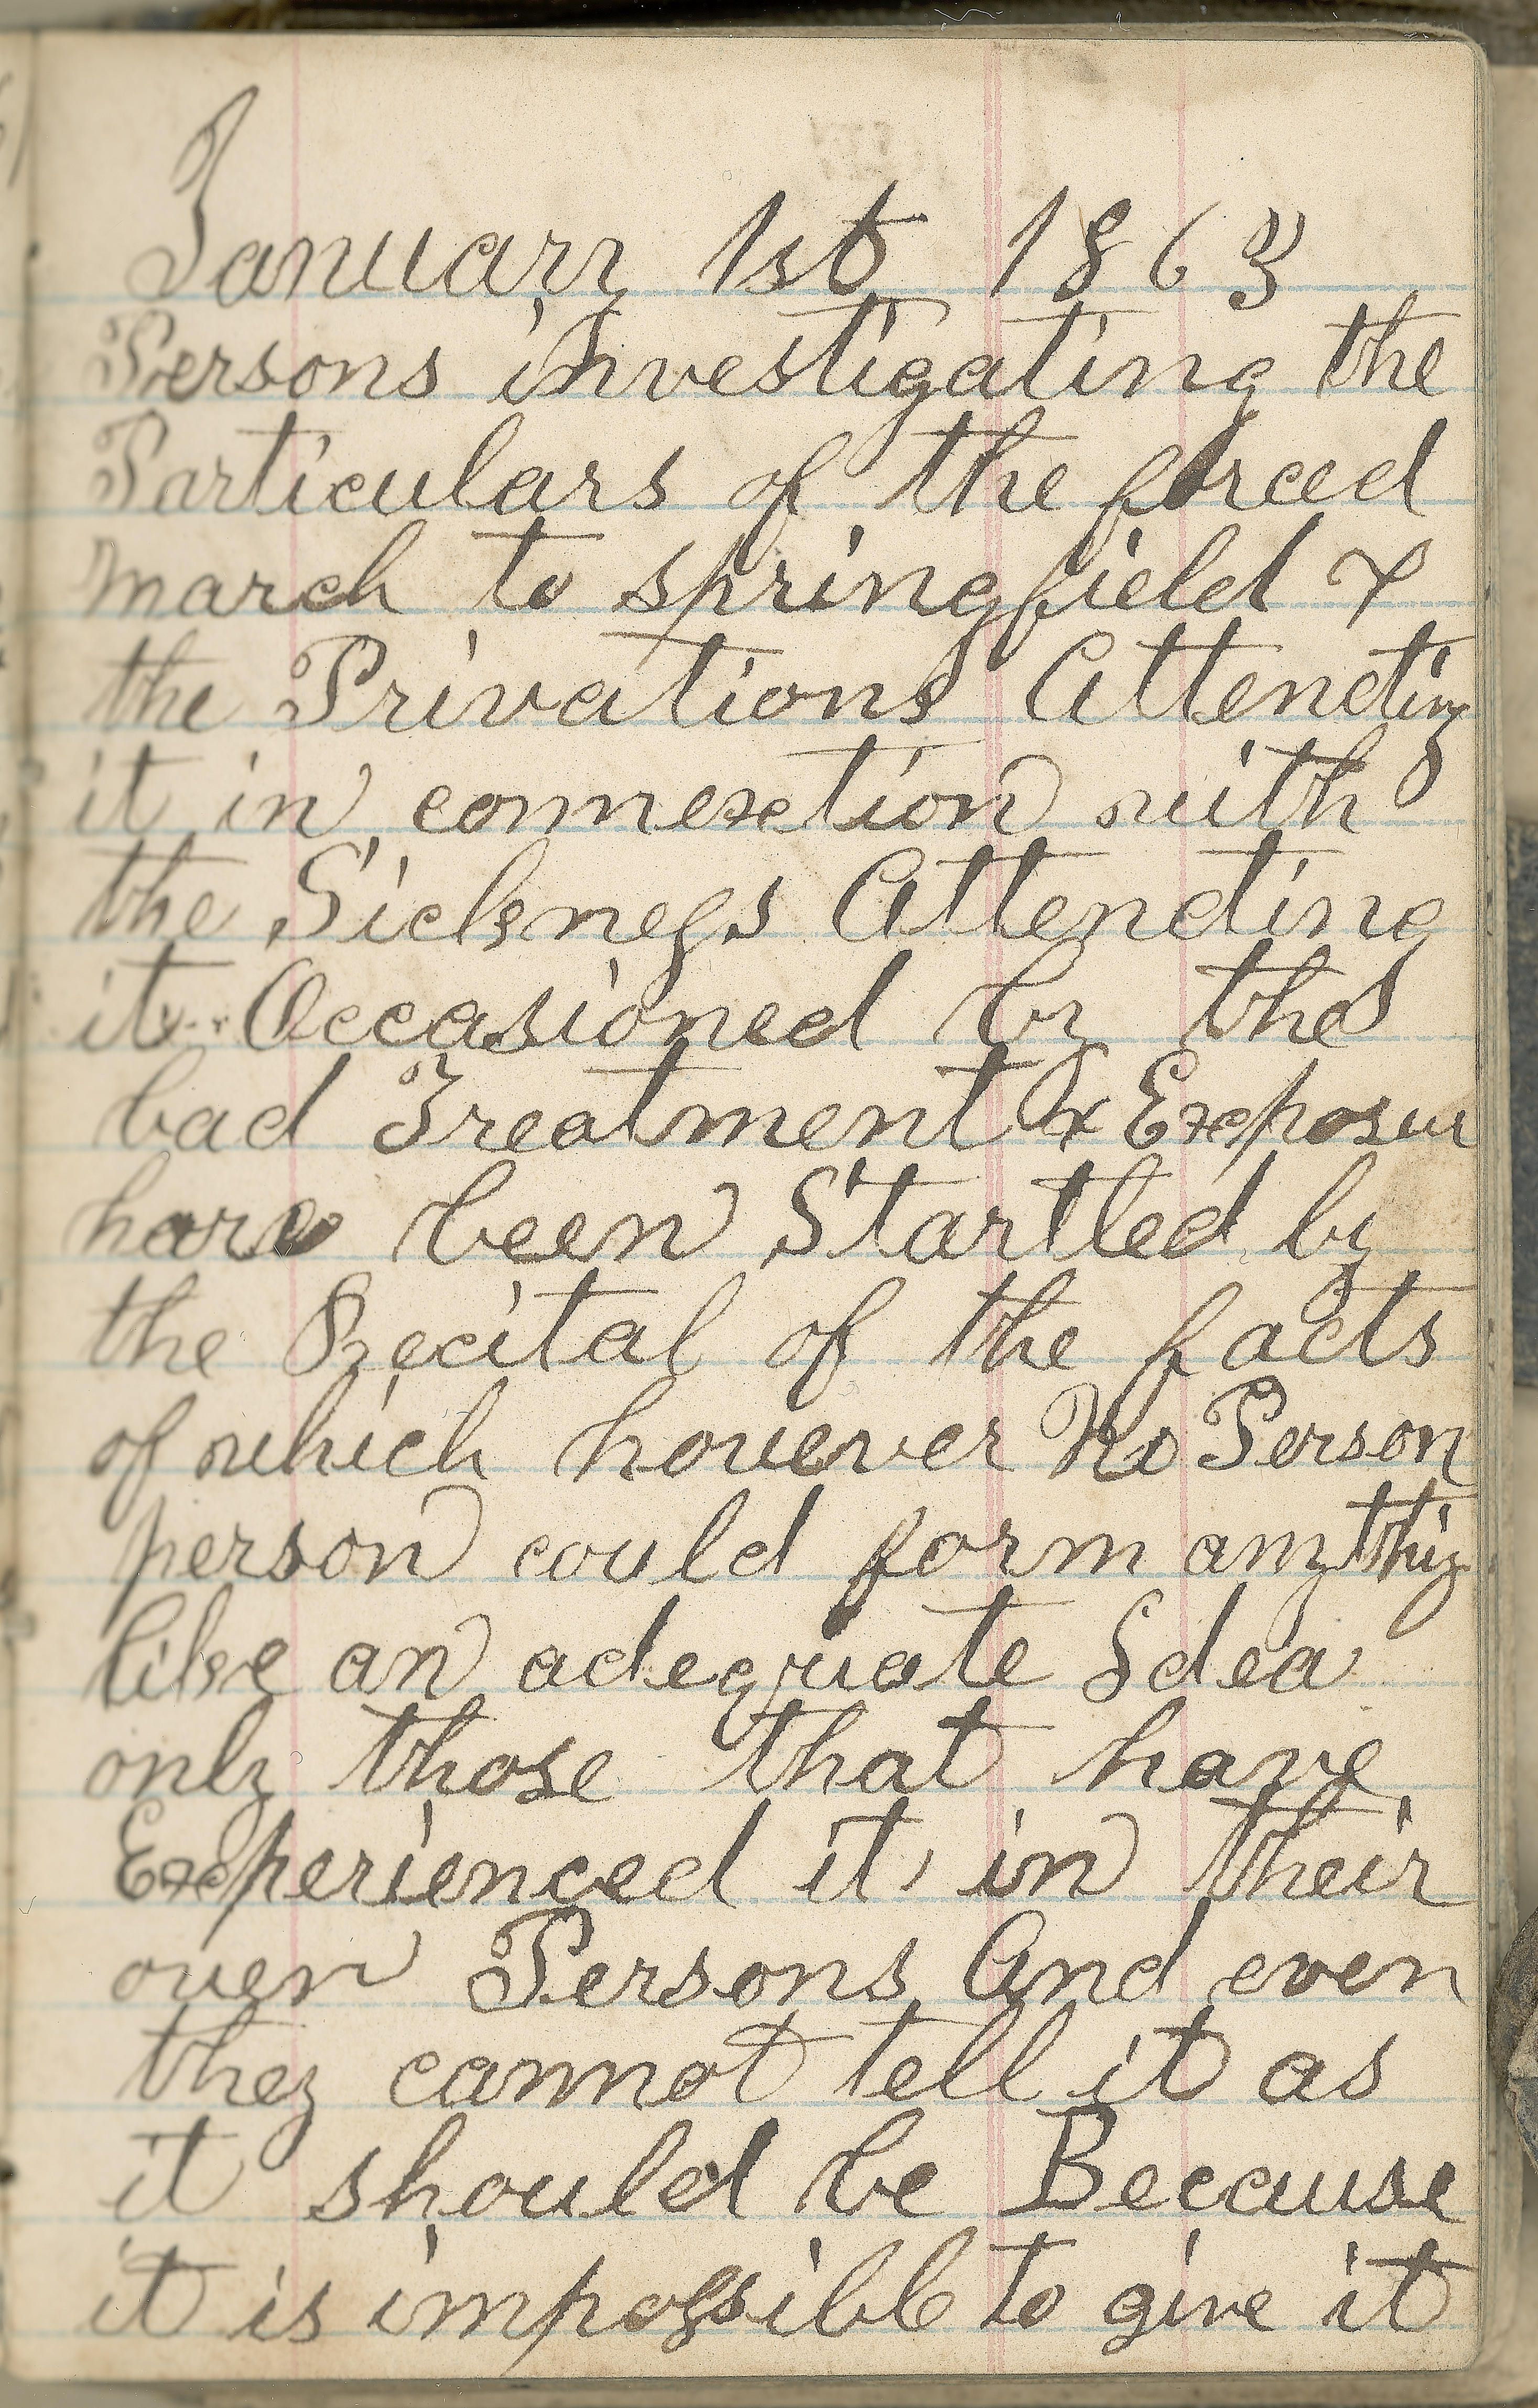 January 1st 1863
Persons investigating the
Particulars of the forced
march to springfield &
the Privations Attending
it in connexction with
the Sickness Attending
it Occasioned by the
bad Treatment & Exposur
have been Startled by
the Recital of the facts
of which however No Person
person could form anything
like an adequate Idea
only those that have
Experienced it in their
owen Persons And even
they cannot tell it as
it should be Because
it is impossible to give it